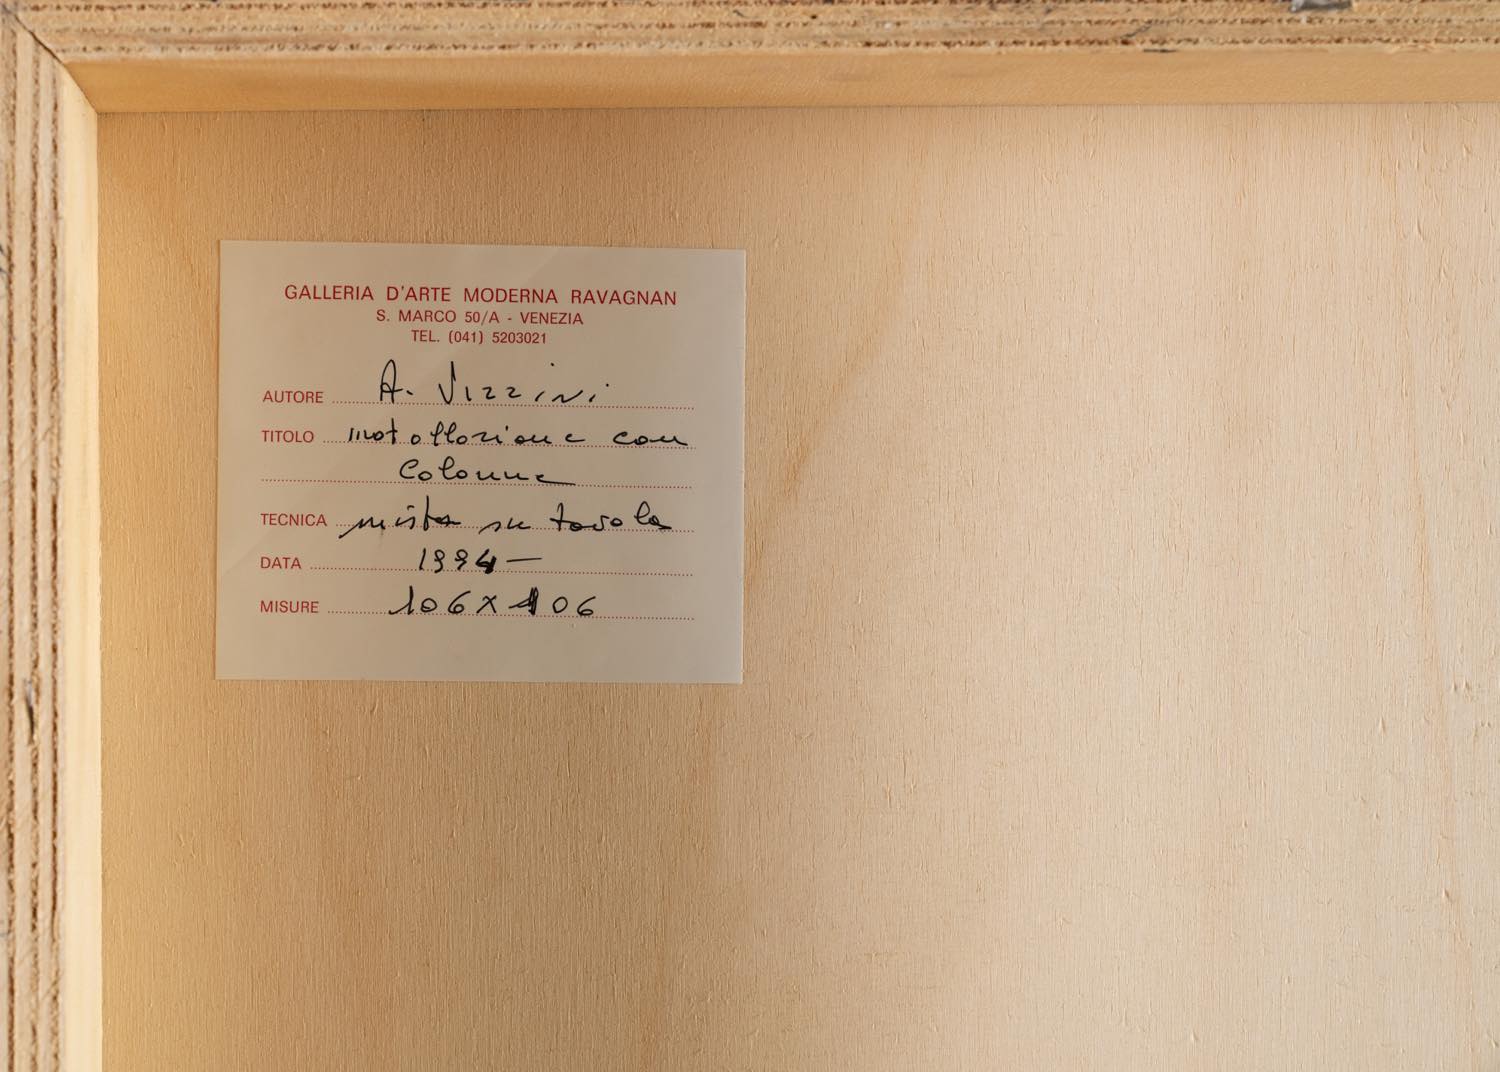 GALLERIA D'ARTE MODERNA RAVAGNAN
S. MARCO 50/A - VENEZIA
TEL. (041) 5203021
AUTORE A. Vizzini
TITOLO con
Colonne
TECNICA mista su tavola
DATA 1994 —
MISURE 106 X 106